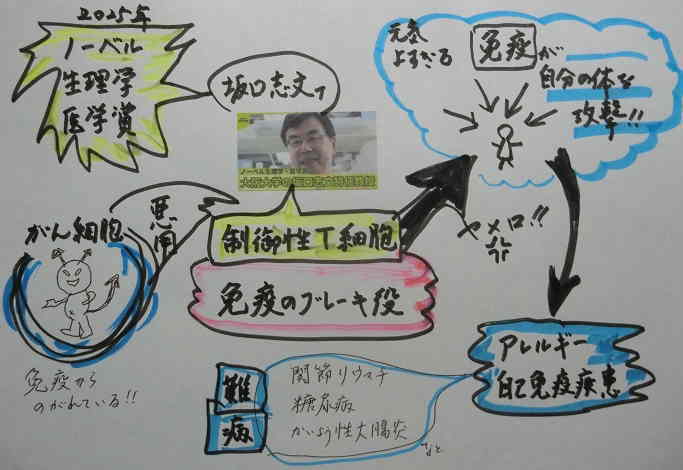 2025年
ノーベル
生理学
医学賞
坂口志文て
大阪大学の坂口志文特任教授
元気
よすぎる
免疫が
自分の体を
攻撃!!
がん細胞
悪用
制御性T細胞
免疫のブレーキ役
ヤメロ!!
免疫から
のがれている!!
アレルギー
自己免疫疾患
難
病
関節リウマチ
糖尿病
かいよう性大腸炎
など